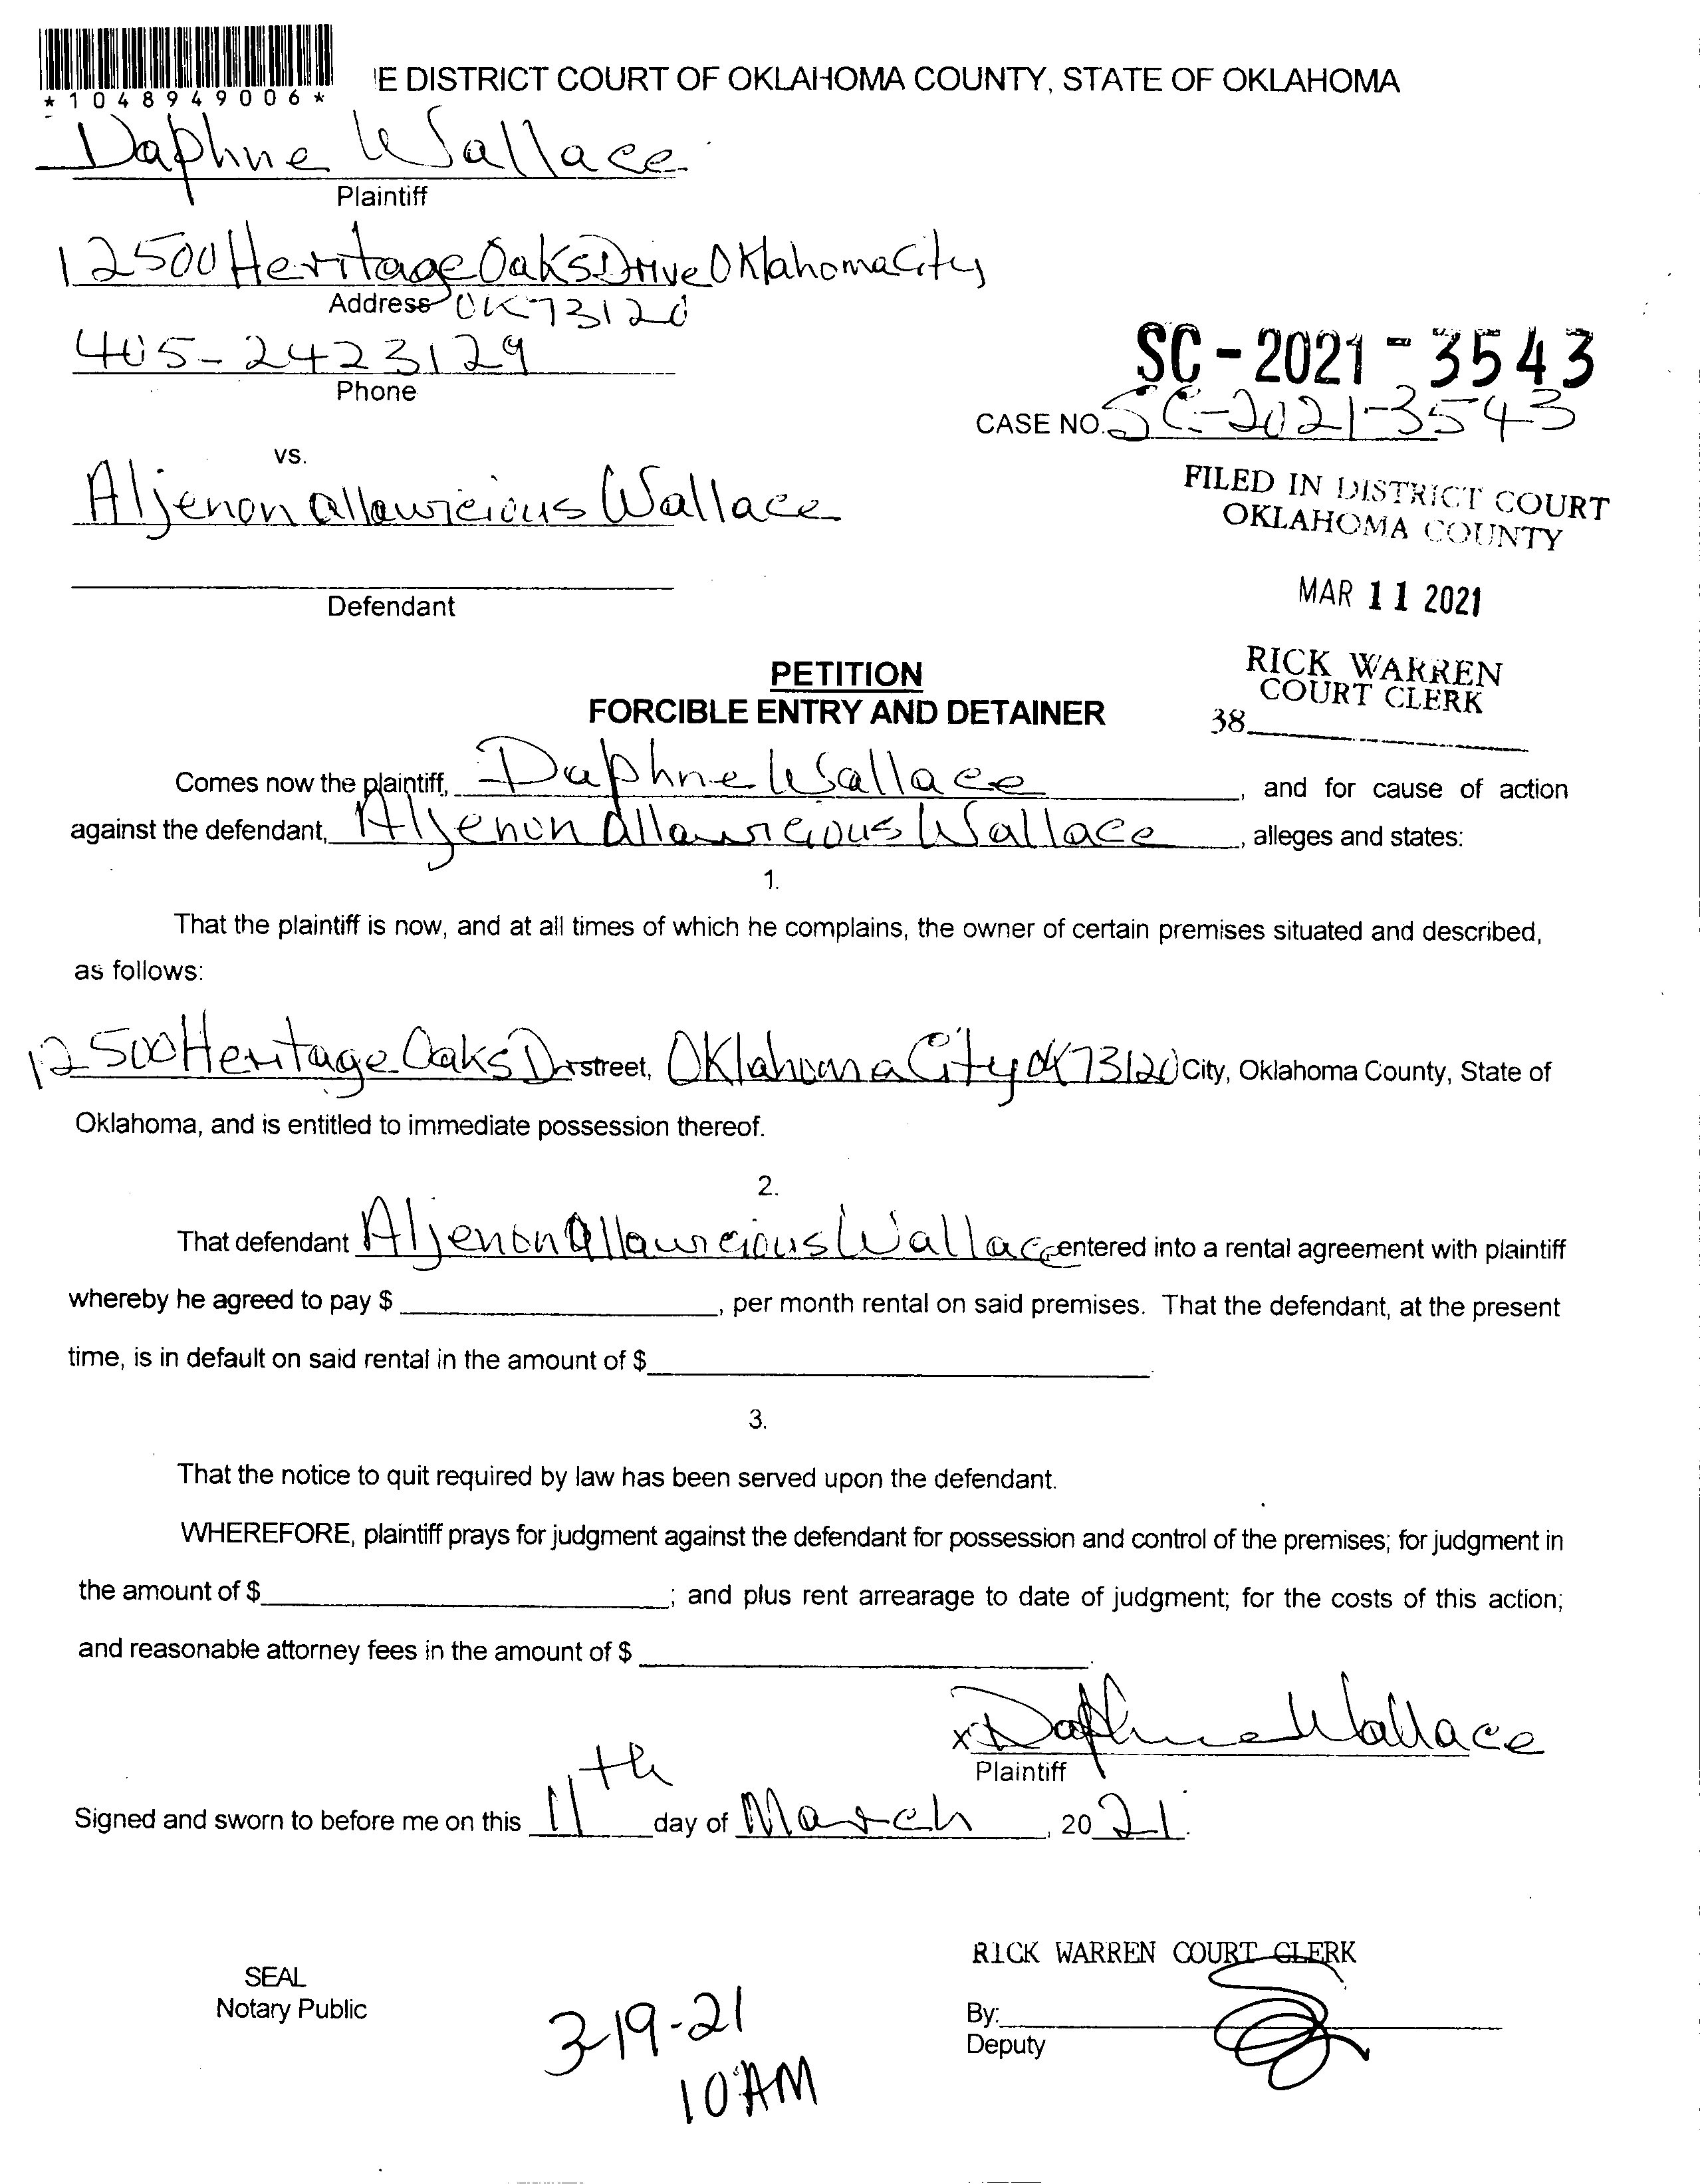 *1048949006*
E DISTRICT COURT OF OKLAHOMA COUNTY, STATE OF OKLAHOMA
Daphne Wallace
Plaintiff
12500 Heritage Oaks Drive Oklahoma City
Address OK 73120
405-2423129
Phone
SC-2021-3543
CASE NO. SC-2021-3543
vs.
Aljenon allawicious Wallace
Defendant
FILED IN DISTRICT COURT
OKLAHOMA COUNTY
MAR 11 2021
RICK WARREN
COURT CLERK
38
PETITION
FORCIBLE ENTRY AND DETAINER
Comes now the plaintiff, Daphne Wallace, and for cause of action
against the defendant, Aljenon allawicious Wallace, alleges and states:
1.
That the plaintiff is now, and at all times of which he complains, the owner of certain premises situated and described,
as follows:
12500 Heritage Oaks Dr street, Oklahoma City OK 73120 City, Oklahoma County, State of
Oklahoma, and is entitled to immediate possession thereof.
2.
That defendant Aljenon Allawicious Wallace entered into a rental agreement with plaintiff
whereby he agreed to pay $ , per month rental on said premises. That the defendant, at the present
time, is in default on said rental in the amount of $ .
3.
That the notice to quit required by law has been served upon the defendant.
WHEREFORE, plaintiff prays for judgment against the defendant for possession and control of the premises; for judgment in
the amount of $ ; and plus rent arrearage to date of judgment; for the costs of this action;
and reasonable attorney fees in the amount of $ .
x Daphne Wallace
Plaintiff
Signed and sworn to before me on this 11th day of March, 2021.
RICK WARREN COURT CLERK
SEAL
Notary Public
3-19-21
10 AM
By:
Deputy